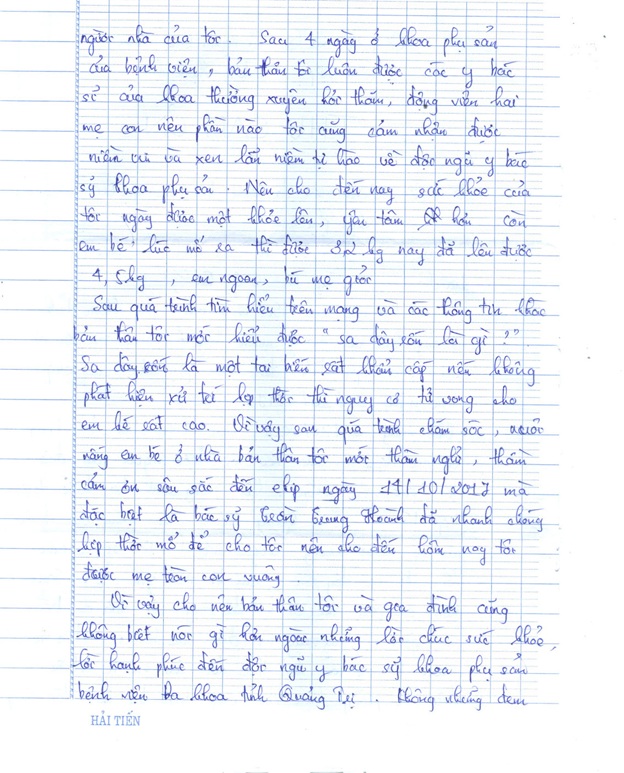 người nhà của tôi. Sau 4 ngày ở khoa phụ sản
của bệnh viện, bản thân tôi luôn được các y bác
sĩ của khoa thường xuyên hỏi thăm, động viên hai
mẹ con nên phần nào tôi cũng cảm nhận được
niềm vui và xen lẫn niềm tự hào về đội ngũ y bác
sỹ khoa phụ sản. Nên cho đến nay sức khỏe của
tôi ngày được một khỏe lên, yên tâm hơn còn
em bé lúc mổ ra thì được 3,2 kg nay đã lên được
4,5kg, em ngoan, bú mẹ giỏi
Sau quá trình tìm hiểu trên mạng và các thông tin khác
bản thân tôi mới hiểu được "sa dây rốn là gì?"
Sa dây rốn là một tai biến sát khẩn cấp nếu không
phát hiện xử trí kịp thời thì nguy cơ tử vong cho
em bé rất cao. Vì vậy sau quá trình chăm sóc, nuôi
nấng em bé ở nhà bản thân tôi mới thầm nghĩ, thầm
cảm ơn sâu sắc đến ekip ngày 14/10/2017 mà
đặc biệt là bác sỹ Trần Quang Hoành đã nhanh chóng
kịp thời mổ đẻ cho tôi nên cho đến hôm nay tôi
được mẹ tròn con vuông.
Vì vậy cho nên bản thân tôi và gia đình cũng
không biết nói gì hơn ngoài những lời chúc sức khỏe,
lời hạnh phúc đến đội ngũ y bác sỹ khoa phụ sản
bệnh viện Đa khoa tỉnh Quảng Trị. Không những đem
HẢI TIẾN